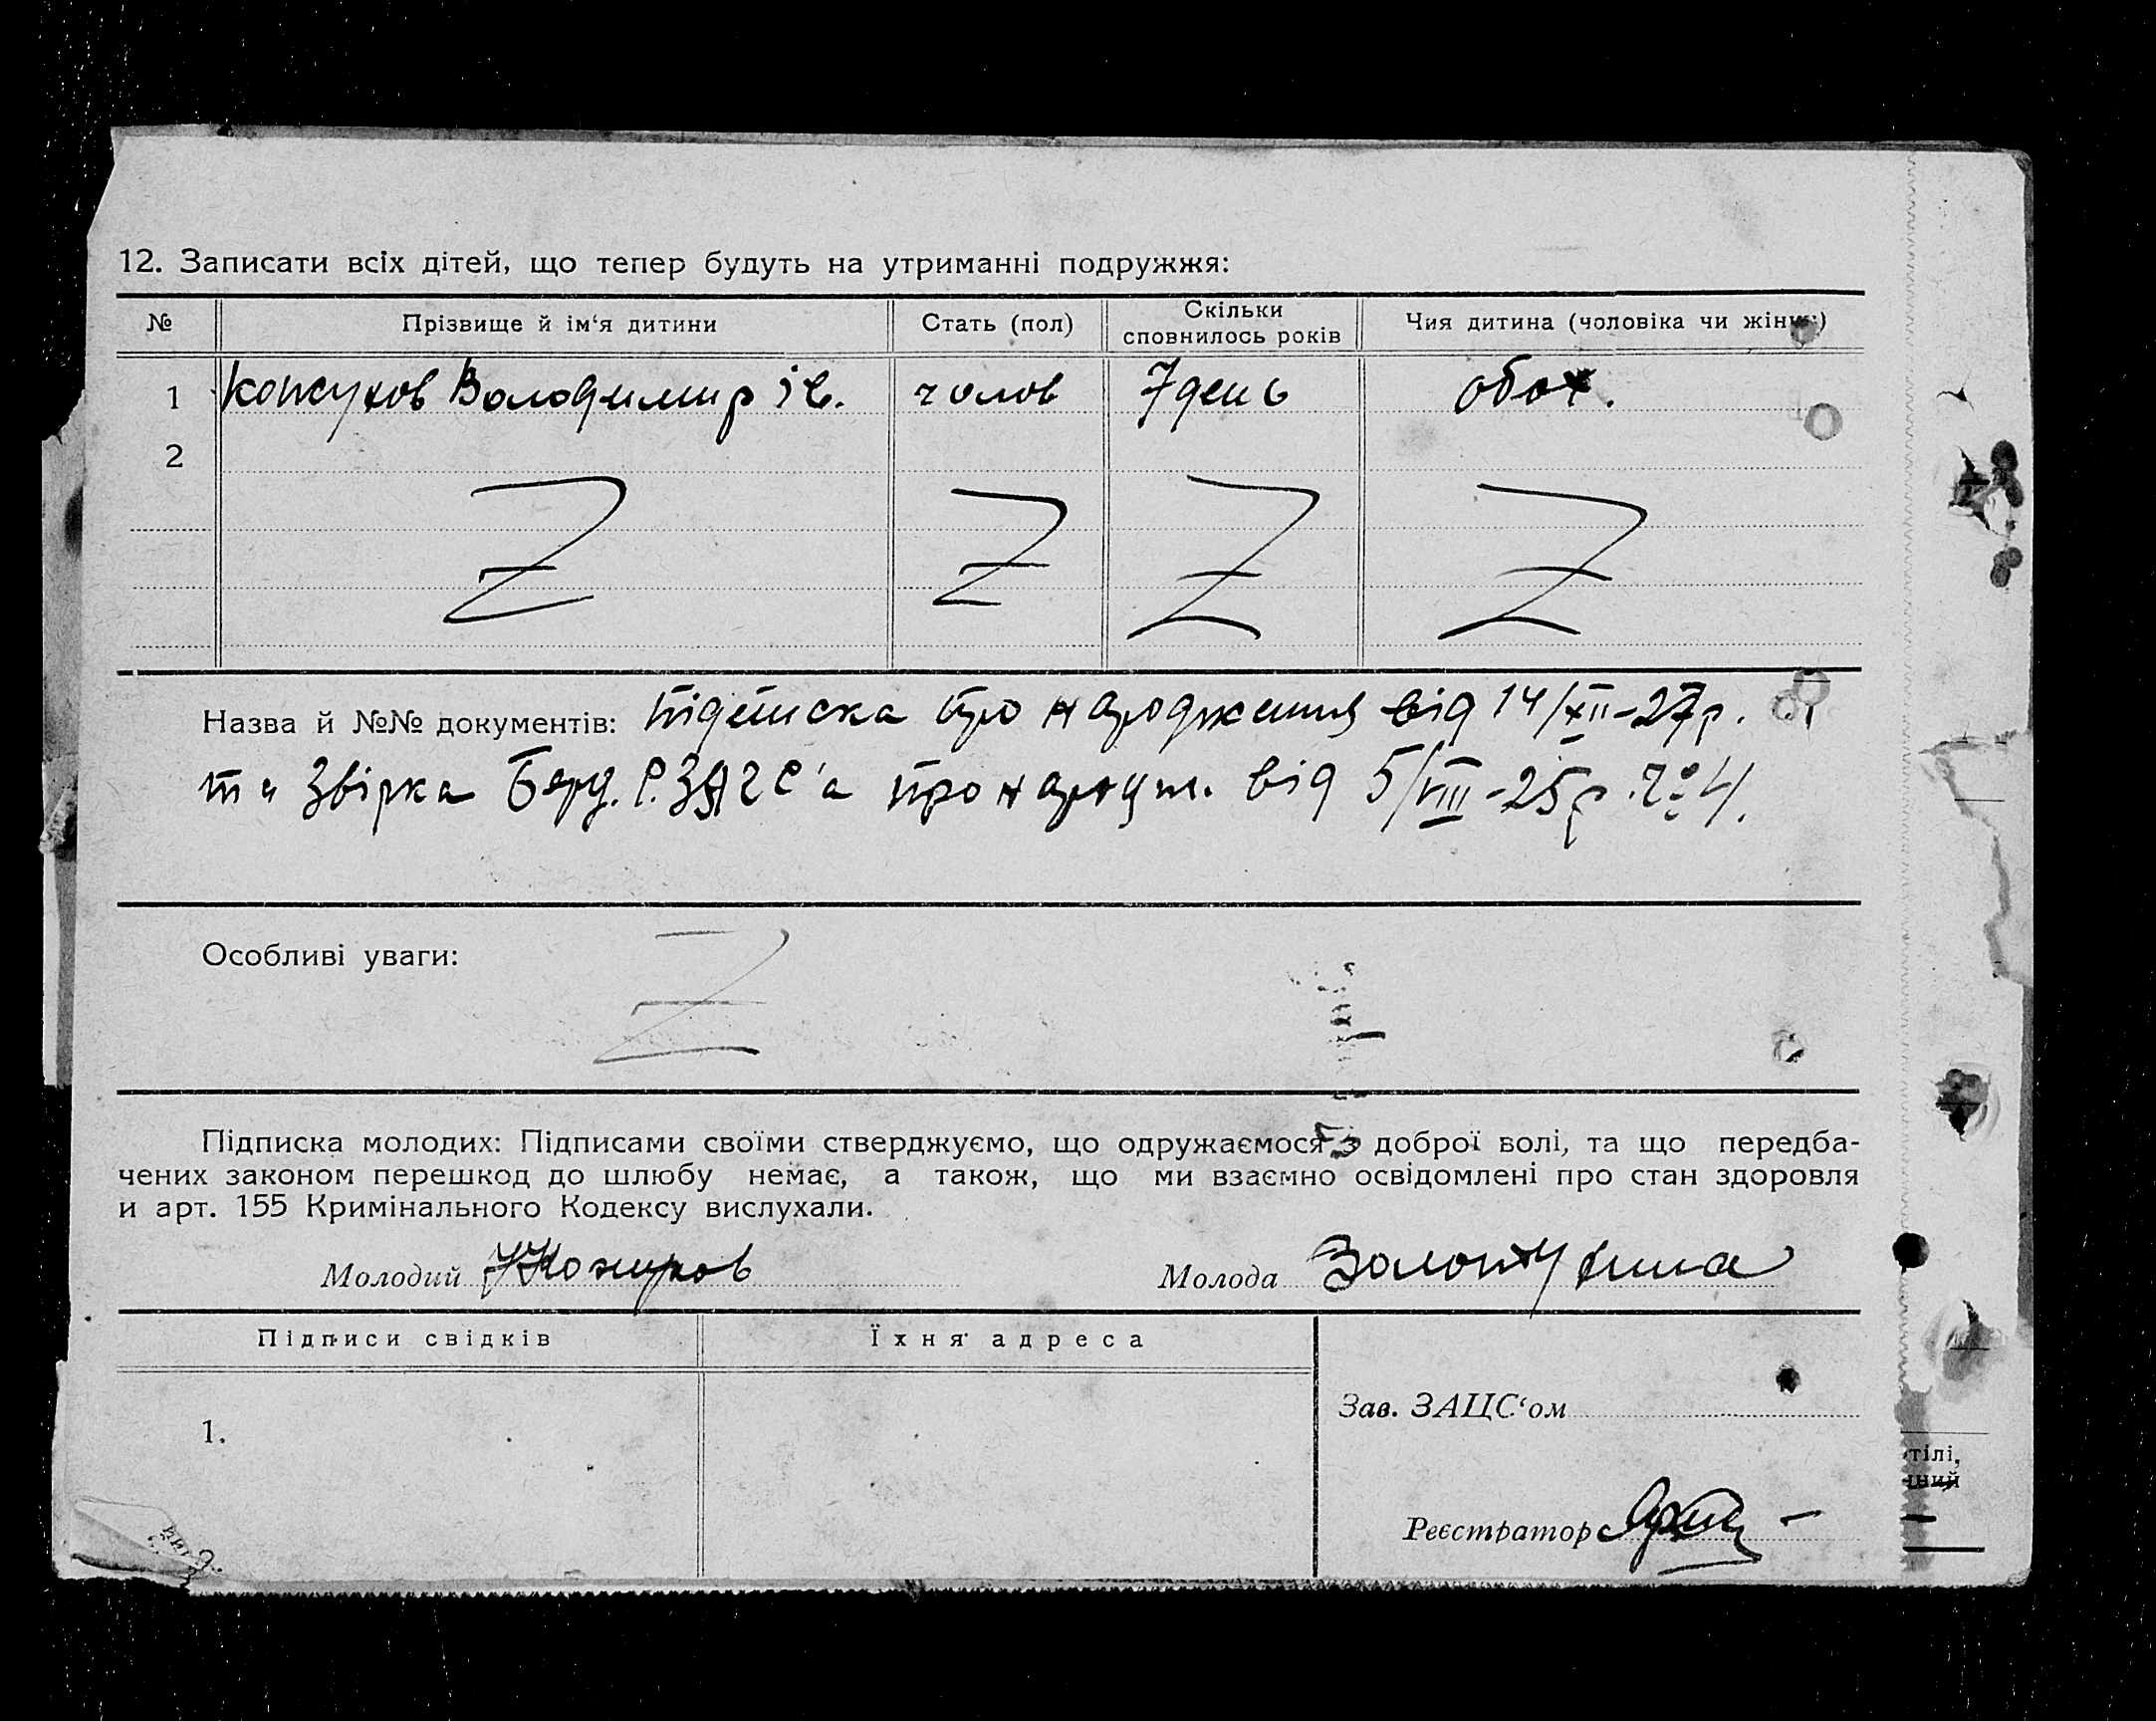 12. Записати всіх дітей, що тепер будуть на утриманні подружжя:
№ Прізвище й ім‘я дитини Стать (пол) Скільки сповнилось років Чия дитина (чоловіка чи жінки)
1 Кожухов Володимир ів. чолов 7 день обох.
2
Назва й №№ документів: підписка про народження від 14/XII-27р.
та Звірка Берд. Р.ЗАГС'а про народж. від 5/VIII-25р. № 4.
Особливі уваги:
Підписка молодих: Підписами своїми стверджуємо, що одружаємося з доброї волі, та що передба-
чених законом перешкод до шлюбу немає, а також, що ми взаємно освідомлені про стан здоровля
и арт. 155 Кримінального Кодексу вислухали.
Молодий Кожухов Молода Золотухина
Підписи свідків Їхня адреса
Зав. ЗАЦС‘ом
1.
тілі,
Реєстратор